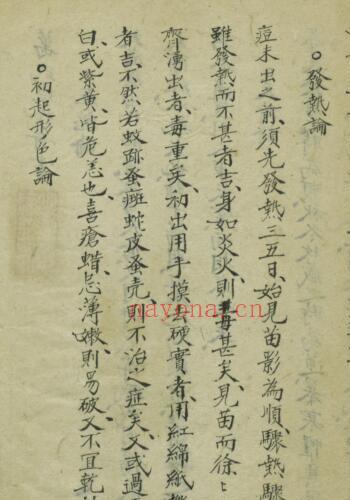 ○發熱論
痘未出之前、須先發熱三五日、始見苗影為順、驟熱驟
雖發熱而不甚者吉、身如炎火、則毒甚矣、見苗而徐〻
齊湧出者、毒重矣、初出用手摸去硬實者、用紅綿紙
者吉、不然若蚊跡蚤斑蛇皮蚤壳、則不治之症矣、又或過
白、或紫黃、皆危恙也、喜瘡蜡、忌薄嫩、則易破、又不宜乾
○初起形色論
nayona.cn